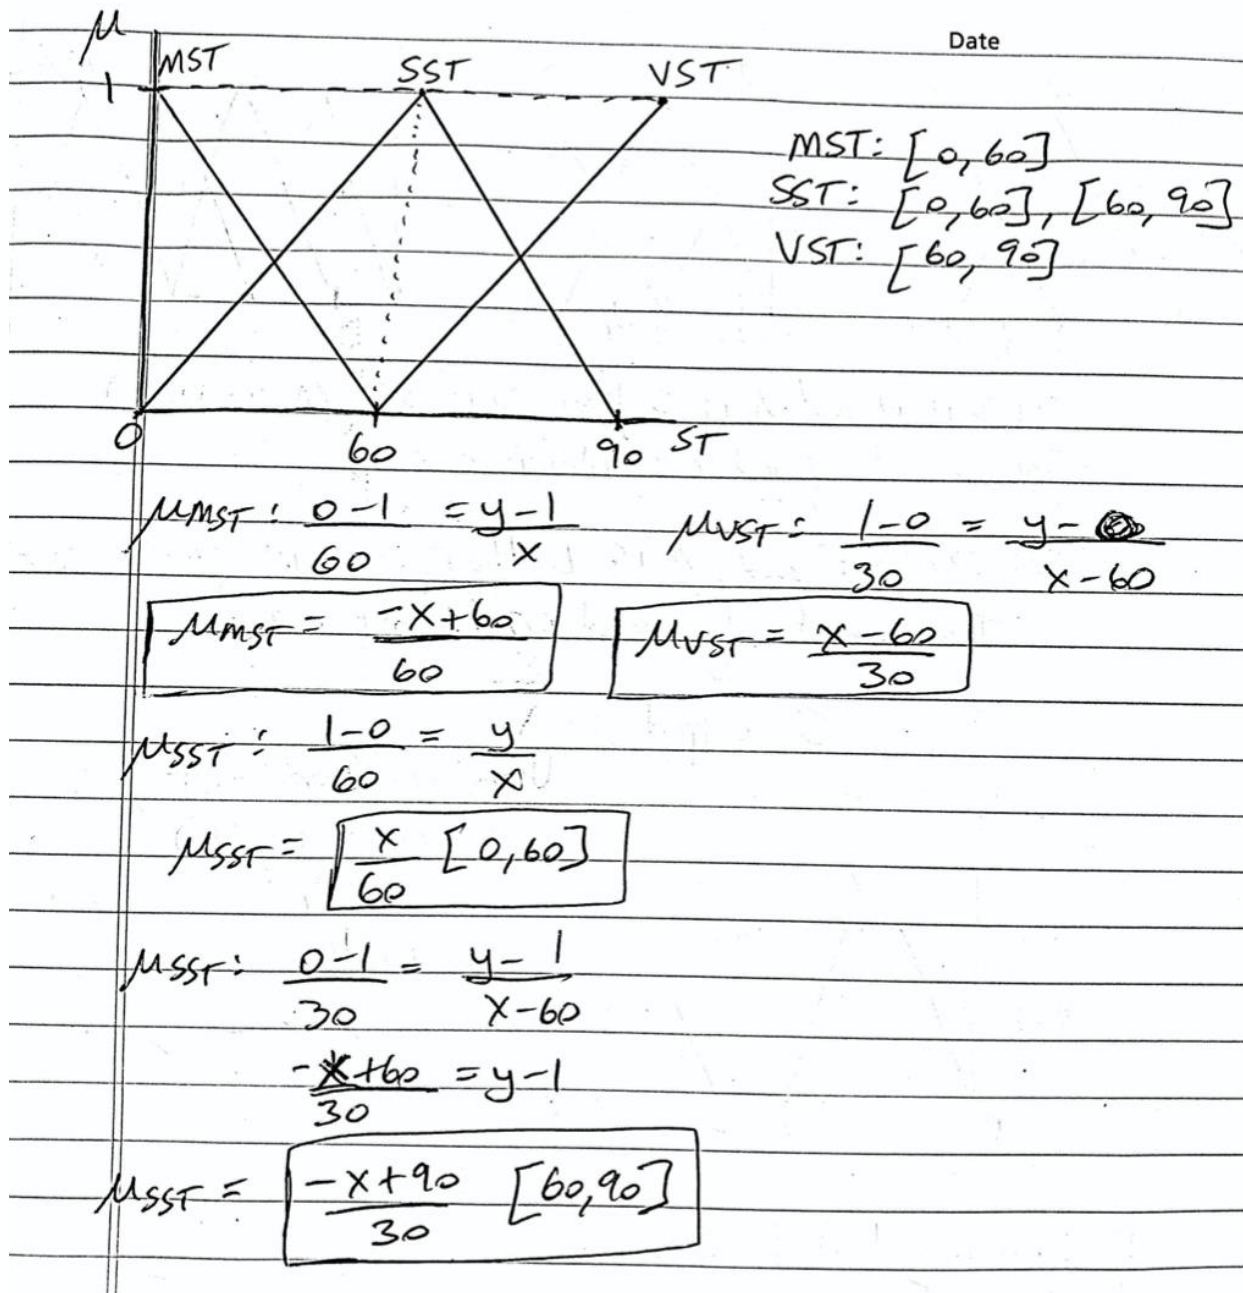 Date
μ
MST SST VST
1
MST: [0,60]
SST: [0,60], [60,90]
VST: [60,90]
0 60 90 ST
μMST: (0-1)/60 = (y-1)/x μVST: (1-0)/30 = (y-0)/(x-60)
μMST = (-x+60)/60 μVST = (x-60)/30
μSST: (1-0)/60 = y/x
μSST = x/60 [0,60]
μSST: (0-1)/30 = (y-1)/(x-60)
(-x+60)/30 = y-1
μSST = (-x+90)/30 [60,90]